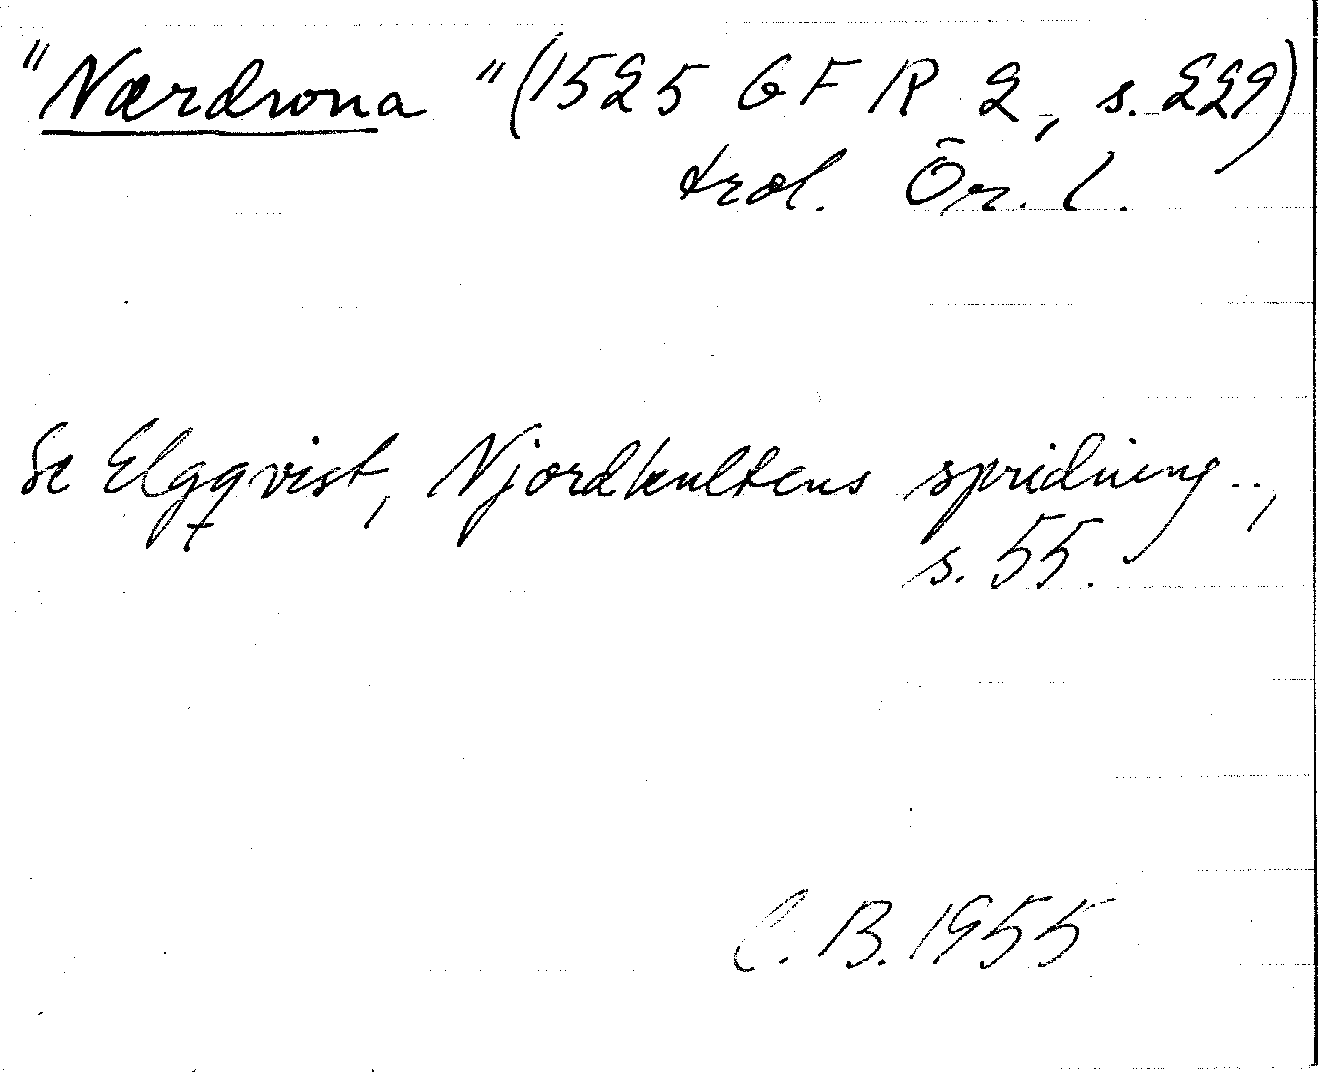 "Nærdrona" (1525 GFR 2, s. 229)
trol. Ör. l.
Se Elgqvist, Njordkultens spridning..,
s. 55.
C. B. 1955